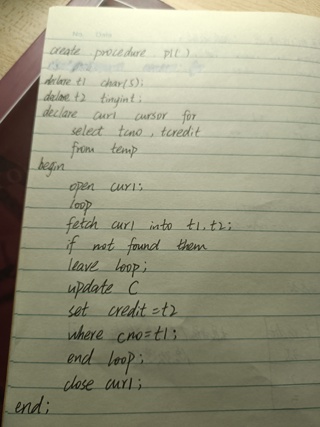 create procedure p1( )
declare t1 char(5);
declare t2 tinyint;
declare cur1 cursor for
select tcno, tcredit
from temp
begin
open cur1;
loop
fetch cur1 into t1, t2;
if not found them
leave loop;
update C
set credit=t2
where cno=t1;
end loop;
close cur1;
end;